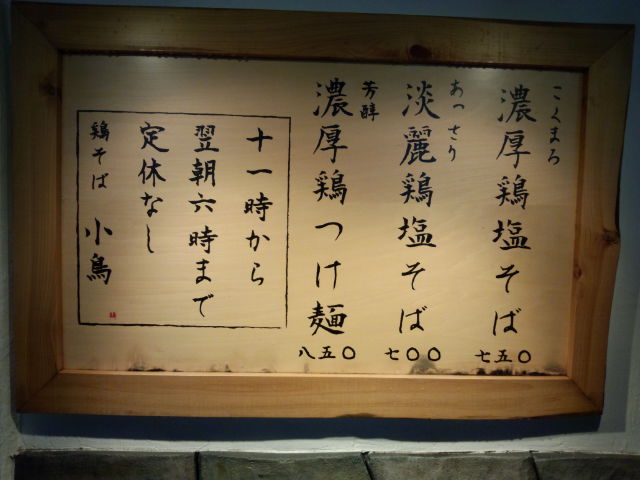 こくまろ
濃厚鶏塩そば
七五〇
あっさり
淡麗鶏塩そば
七〇〇
芳醇
濃厚鶏つけ麺
八五〇
十一時から
翌朝六時まで
定休なし
鶏そば 小鳥